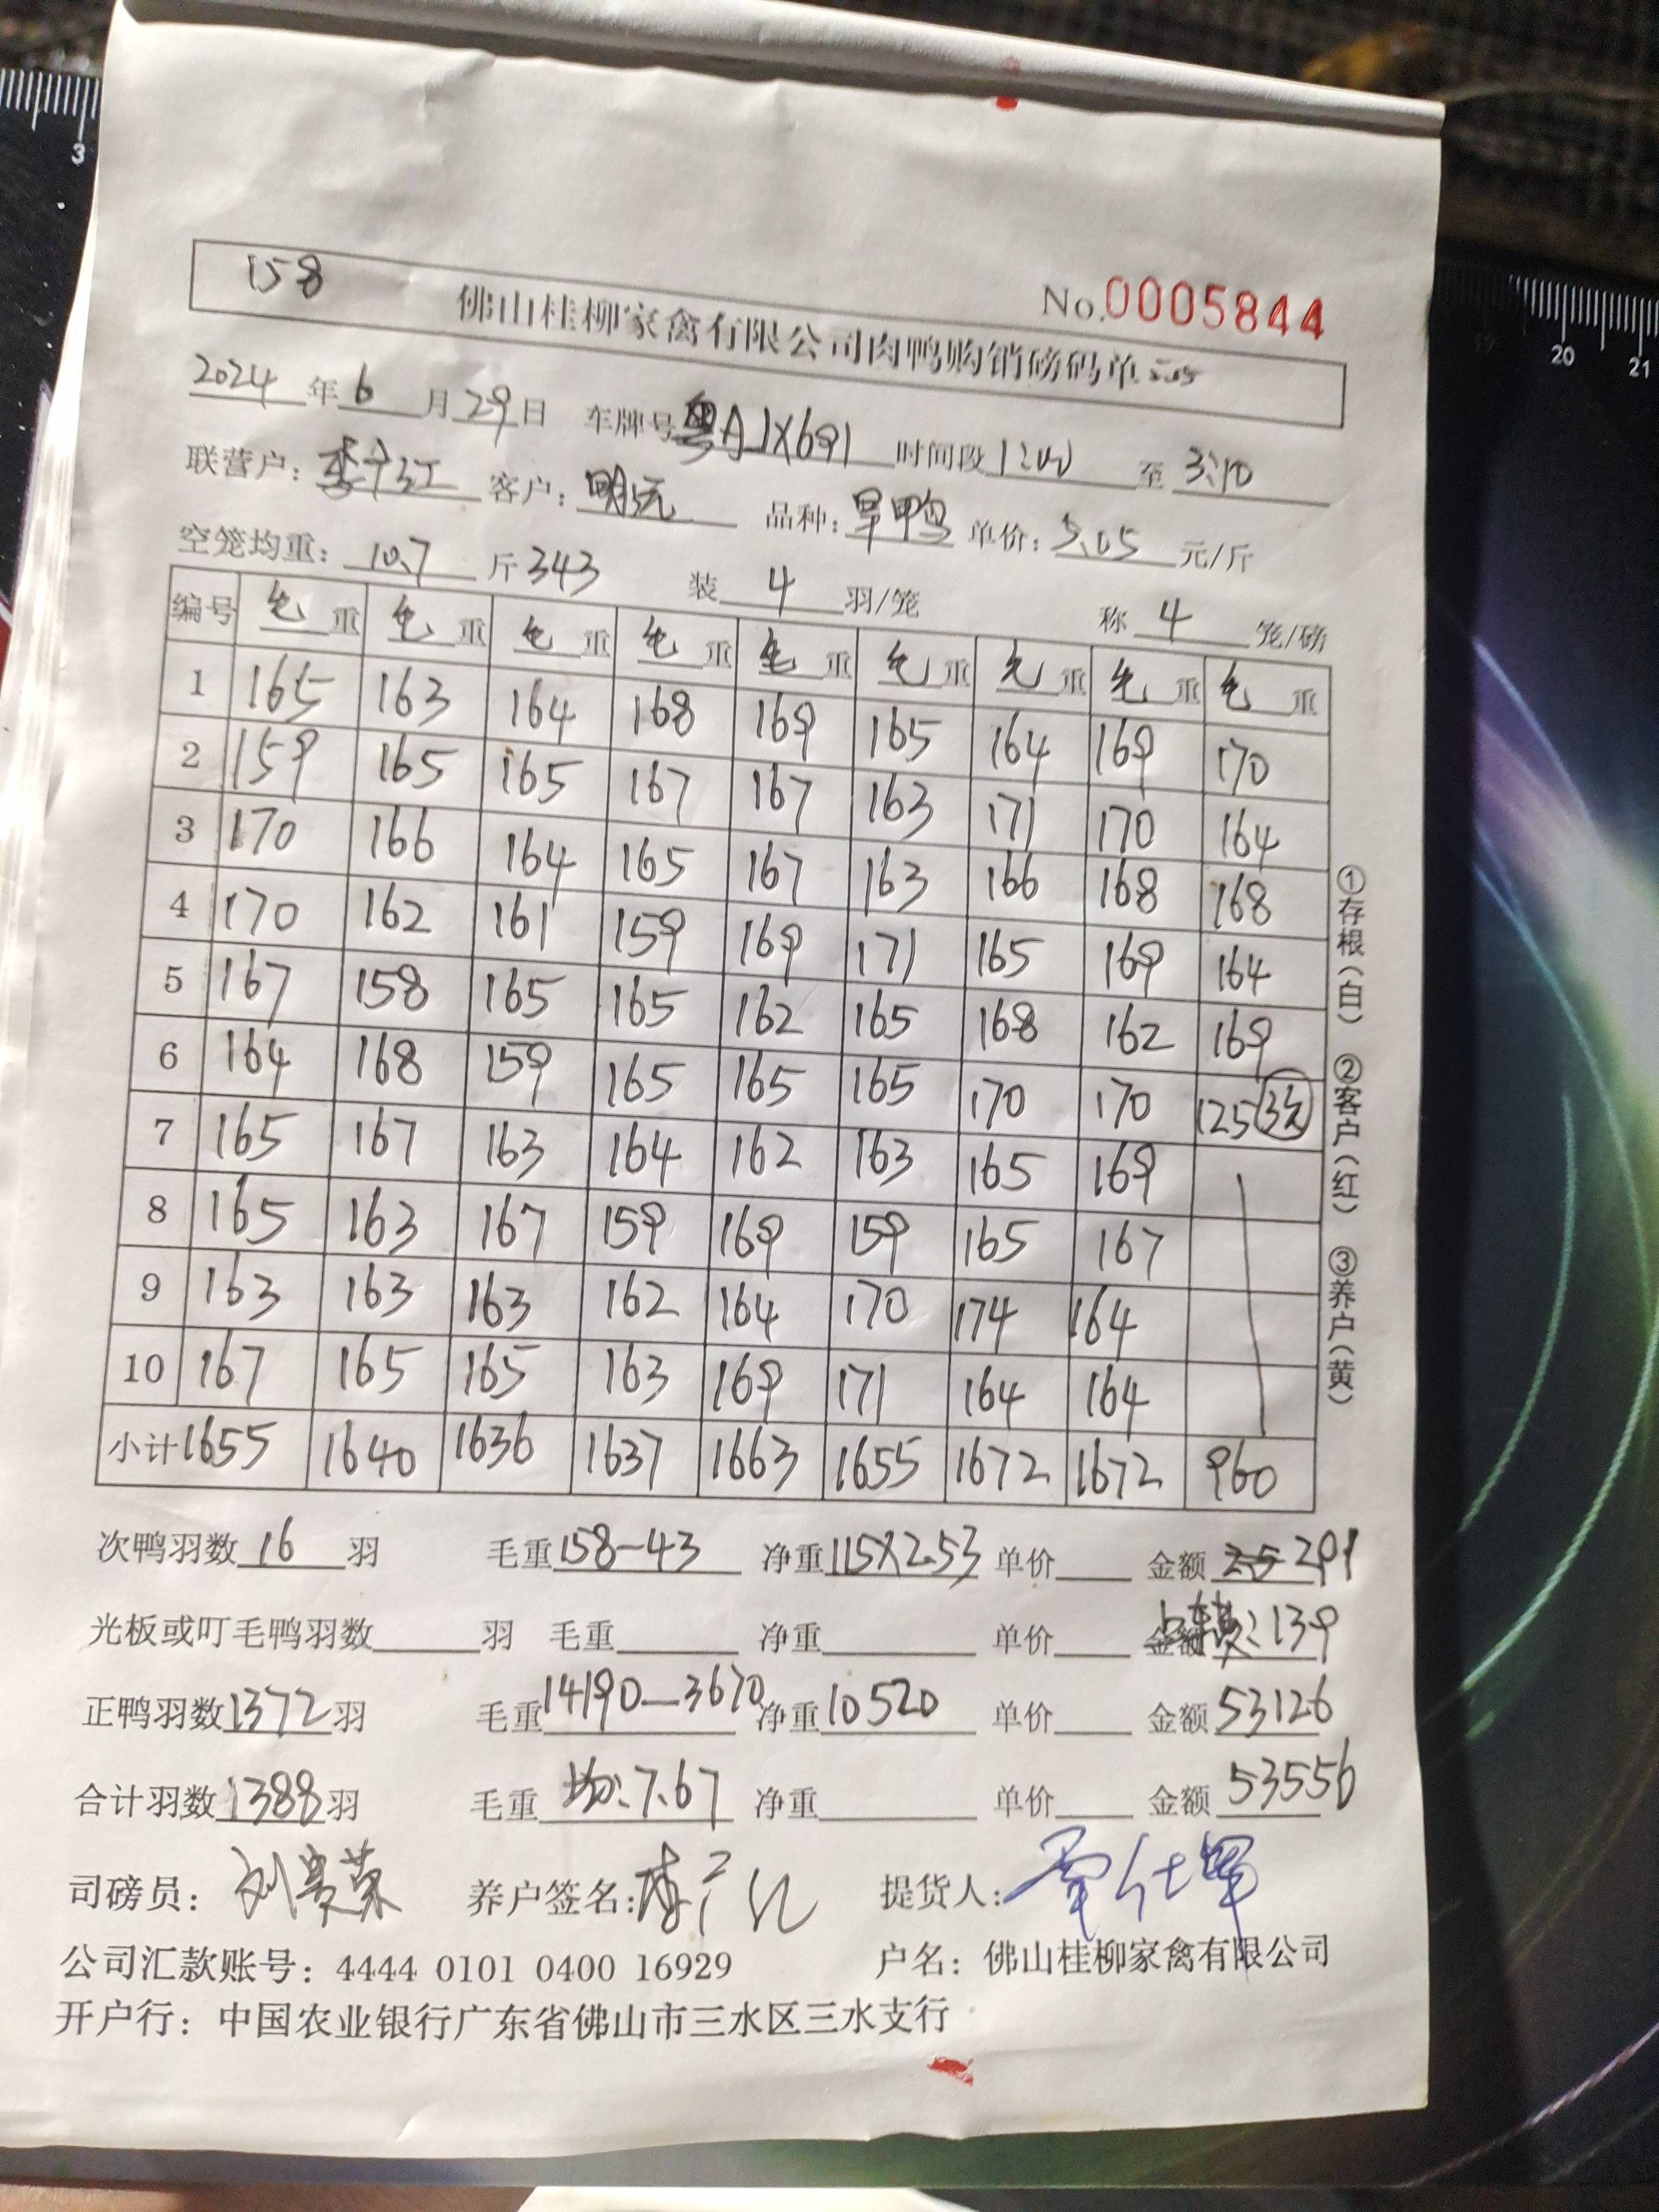 158
No.0005844
佛山桂柳家禽有限公司肉鸭购销磅码单
2024年6月29日 车牌号粤A1X691 时间段1:00 至 3:10
联营户: 李广江 客户: 明沅 品种: 旱鸭 单价: 5.05 元/斤
空笼均重: 10.7 斤 343 装 4 羽/笼 称 4 笼/磅
编号 毛重 毛重 毛重 毛重 毛重 毛重 毛重 毛重 毛重
1 165 163 164 168 169 165 164 169 170
2 159 165 165 167 167 163 171 170 164
3 170 166 164 165 167 163 166 168 168
4 170 162 161 159 169 171 165 169 164
5 167 158 165 165 162 165 168 162 169
6 164 168 159 165 165 165 170 170 125 3笼
7 165 167 163 164 162 163 165 169
8 165 163 167 159 169 159 165 167
9 163 163 163 162 164 170 174 164
10 167 165 165 163 169 171 164 164
小计 1655 1640 1636 1637 1663 1655 1672 1672 960
①存根(白) ②客户(红) ③养户(黄)
次鸭羽数 16 羽 毛重 158-43 净重 115×2.53 单价 金额 291
光板或叮毛鸭羽数 羽 毛重 净重 单价 金额 :139
正鸭羽数 1372 羽 毛重 14190-3670 净重 10520 单价 金额 53126
合计羽数 1388 羽 毛重 均:7.67 净重 单价 金额 53556
司磅员: 刘贵荣 养户签名: 李广江 提货人:
公司汇款账号: 4444 0101 0400 16929 户名: 佛山桂柳家禽有限公司
开户行: 中国农业银行广东省佛山市三水区三水支行
3
19 20 21